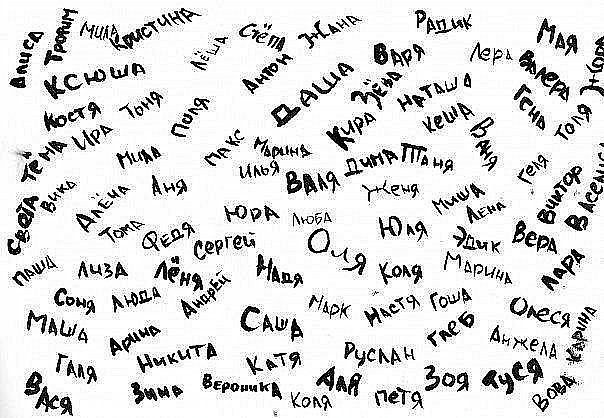 Алиса
Трофим
Мила
Кристина
Лёша
Стёпа
Жана
Радик
Варя
Лера
Мая
Валера
Жора
Ксюша
Антон
Даша
Зёва
Наташа
Гена
Толя
Костя
Тоня
Поля
Кира
Кеша
Ваня
Тёма
Ира
Мила
Макс
Марина
Илья
Дима
Таня
Геля
Виктор
Василиса
Света
Вика
Алёна
Аня
Валя
Женя
Миша
Лена
Тома
Федя
Юра
Люба
Юля
Эдик
Вера
Сергей
Оля
Паша
Лиза
Лёня
Надя
Коля
Марина
Лара
Соня
Люда
Андрей
Марк
Настя
Гоша
Олеся
Маша
Арина
Саша
Глеб
Анжела
Карина
Галя
Никита
Катя
Руслан
Вася
Зина
Вероника
Коля
Аля
Петя
Зоя
Дуся
Вова